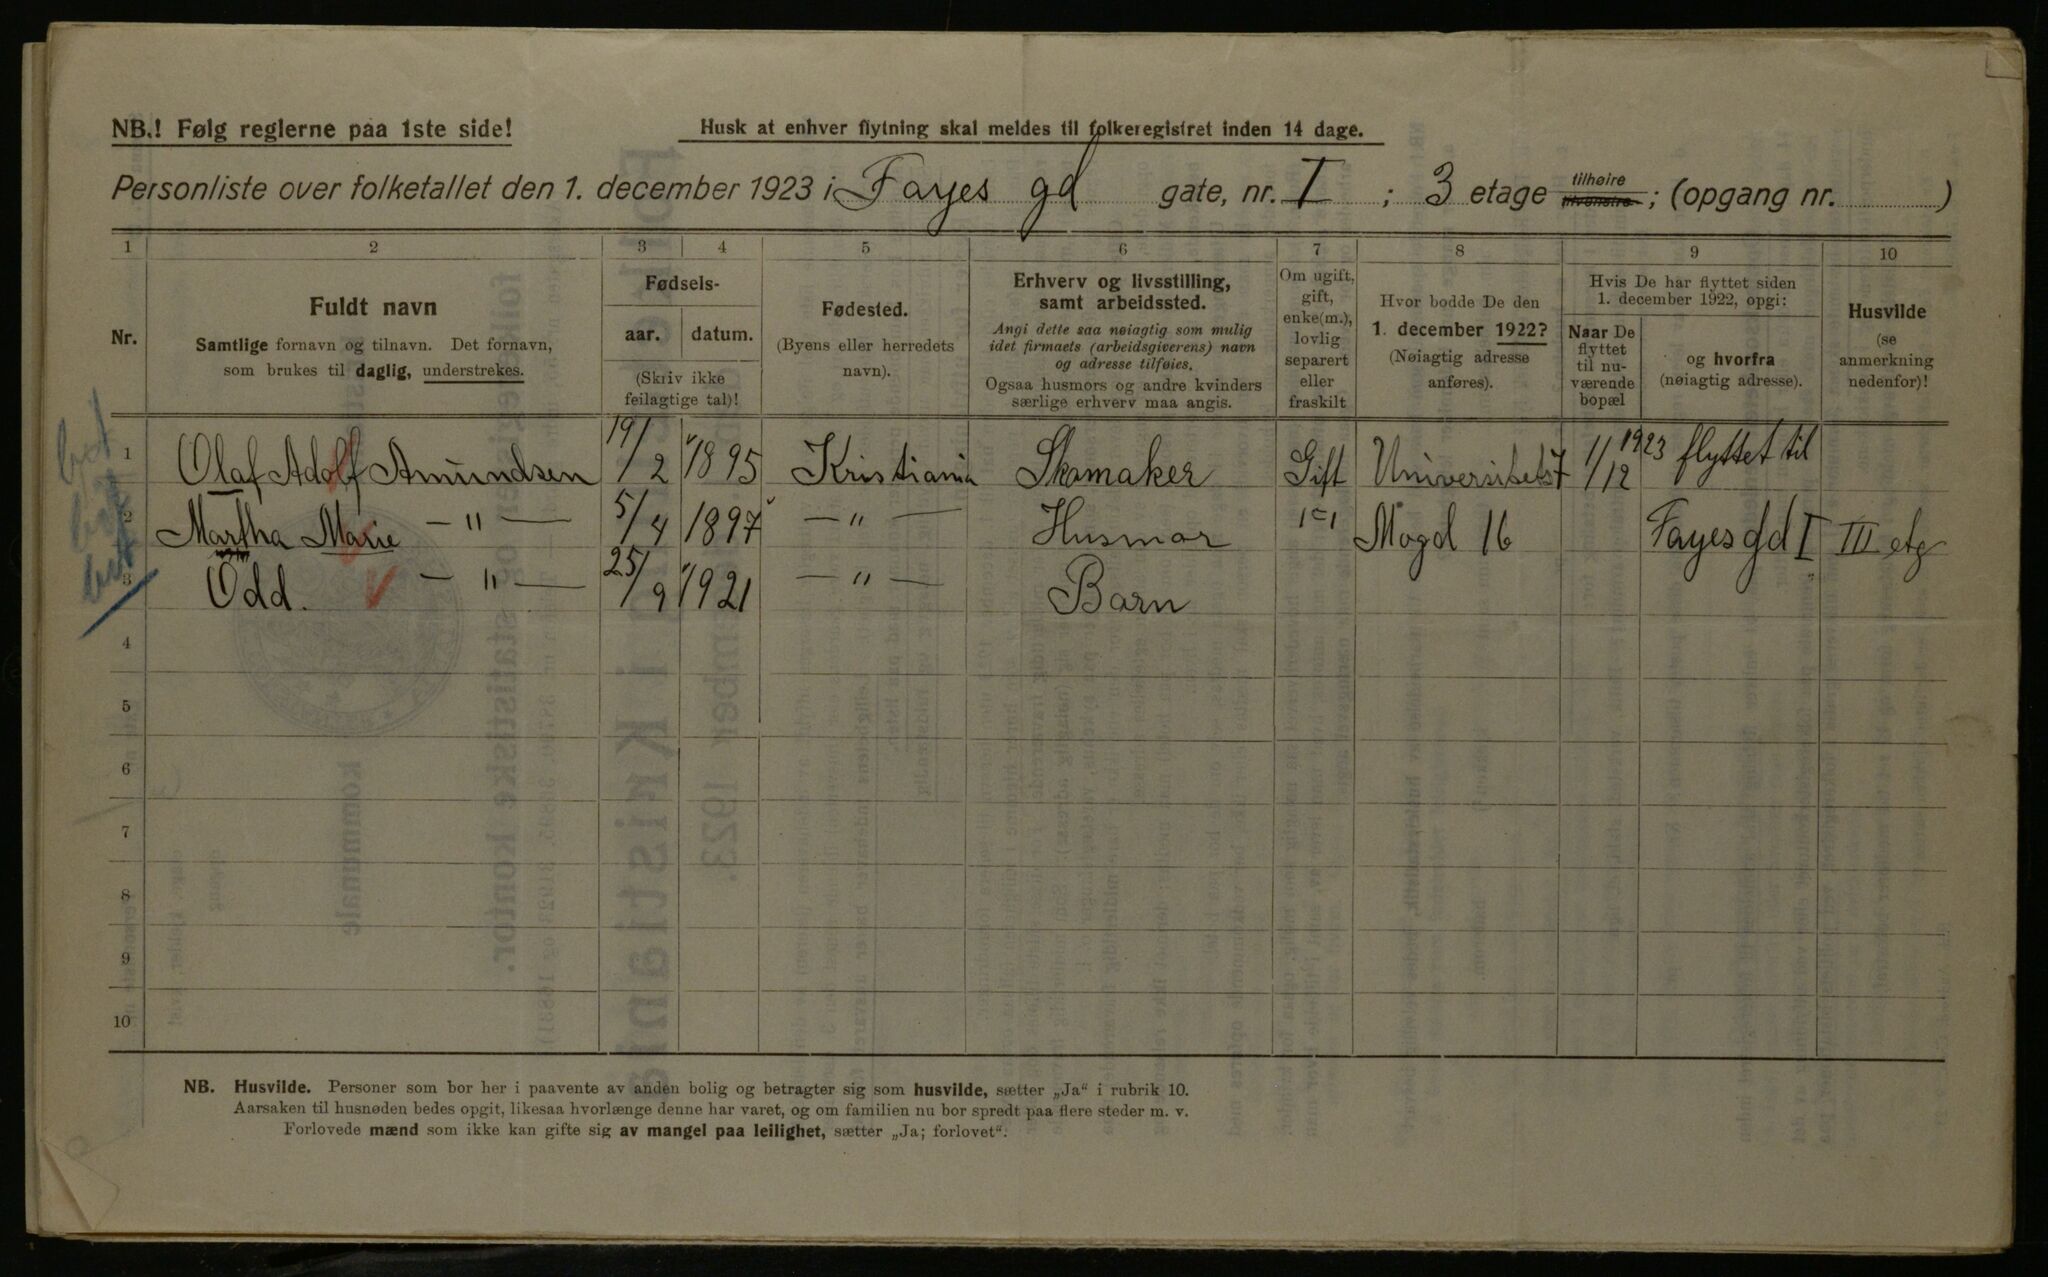 NB.! Følg reglerne paa 1ste side!
Husk at enhver flytning skal meldes til folkeregistret inden 14 dage.
Personliste over folketallet den 1. december 1923 i Fayes gd gate, nr. I ; 3 etage tilhøire tilvenstre ; (opgang nr. )
1 2 3 4 5 6 7 8 9 10
Nr.
Fuldt navn
Samtlige fornavn og tilnavn. Det fornavn,
som brukes til daglig, understrekes.
Fødsels-
aar. datum.
(Skriv ikke
feilagtige tal)!
Fødested.
(Byens eller herredets
navn).
Erhverv og livsstilling,
samt arbeidssted.
Angi dette saa nøiagtig som mulig
idet firmaets (arbeidsgiverens) navn
og adresse tilføies.
Ogsaa husmors og andre kvinders
særlige erhverv maa angis.
Om ugift,
gift,
enke(m.),
lovlig
separert
eller
fraskilt
Hvor bodde De den
1. december 1922?
(Nøiagtig adresse
anføres).
Hvis De har flyttet siden
1. december 1922, opgi:
Naar De
flyttet
til nu-
værende
bopæl
og hvorfra
(nøiagtig adresse).
Husvilde
(se
anmerkning
nedenfor)!
1 Olaf Adolf Amundsen 19/2 1895 Kristiania Skomaker Gift Universitetst 7 1/12 1923 flyttet til
2 Martha Marie — " — 5/4 1897 — " — Husmor Mogd 16 Fayes gd I III etg
3 Odd. — " — 25/9 1921 — " — Barn
4
5
6
7
8
9
10
NB. Husvilde. Personer som bor her i paavente av anden bolig og betragter sig som husvilde, sætter „Ja“ i rubrik 10.
Aarsaken til husnøden bedes opgit, likesaa hvorlænge denne har varet, og om familien nu bor spredt paa flere steder m. v.
Forlovede mænd som ikke kan gifte sig av mangel paa leilighet, sætter „Ja; forlovet“.